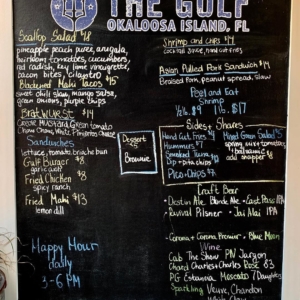 THE GULF
OKALOOSA ISLAND, FL
Scallop Salad $18
pineapple peach puree, arugula,
heirloom tomatoes, cucumbers
red radish, key lime vinaigrette,
bacon bites, cilantro
Blackened Mahi Tacos $15
sweet chili slaw, mango salsa,
green onions, purple chips
BratWurst $14
Sandwiches
lettuce, tomato, brioche bun
Gulf Burger $
garlic aioli
Fried Chicken $
spicy ranch
Fried Mahi $13
lemon dill
Happy Hour
daily
3-6 PM
Dessert
Brownie
Shrimp and chips $14
Asian Pulled Pork Sandwich $14
Braised Pork, peanut slaw
Peel and Eat
Shrimp
1/2 lb. $9 1 lb. $17
Sides + Shares
Hand Cut Fries $4
Hummus $7
Smoked Tuna
Dip + pita chips
Pico + Chips
Mixed Green Salad $
spring mix + tomatoes,
balsamic
add snapper $8
Craft Beer
Destin Ale, Blonde Ale, East Pass IPA
Revival Pilsner - Jai Alai IPA
Corona + Corona Premier - Blue Moon
Wine
Cab The Show PN Jargon
Chard Charles + Charles Rosé $3
PG Estancia Moscato 7 Daughters
Sparkling Veuve, Chandon